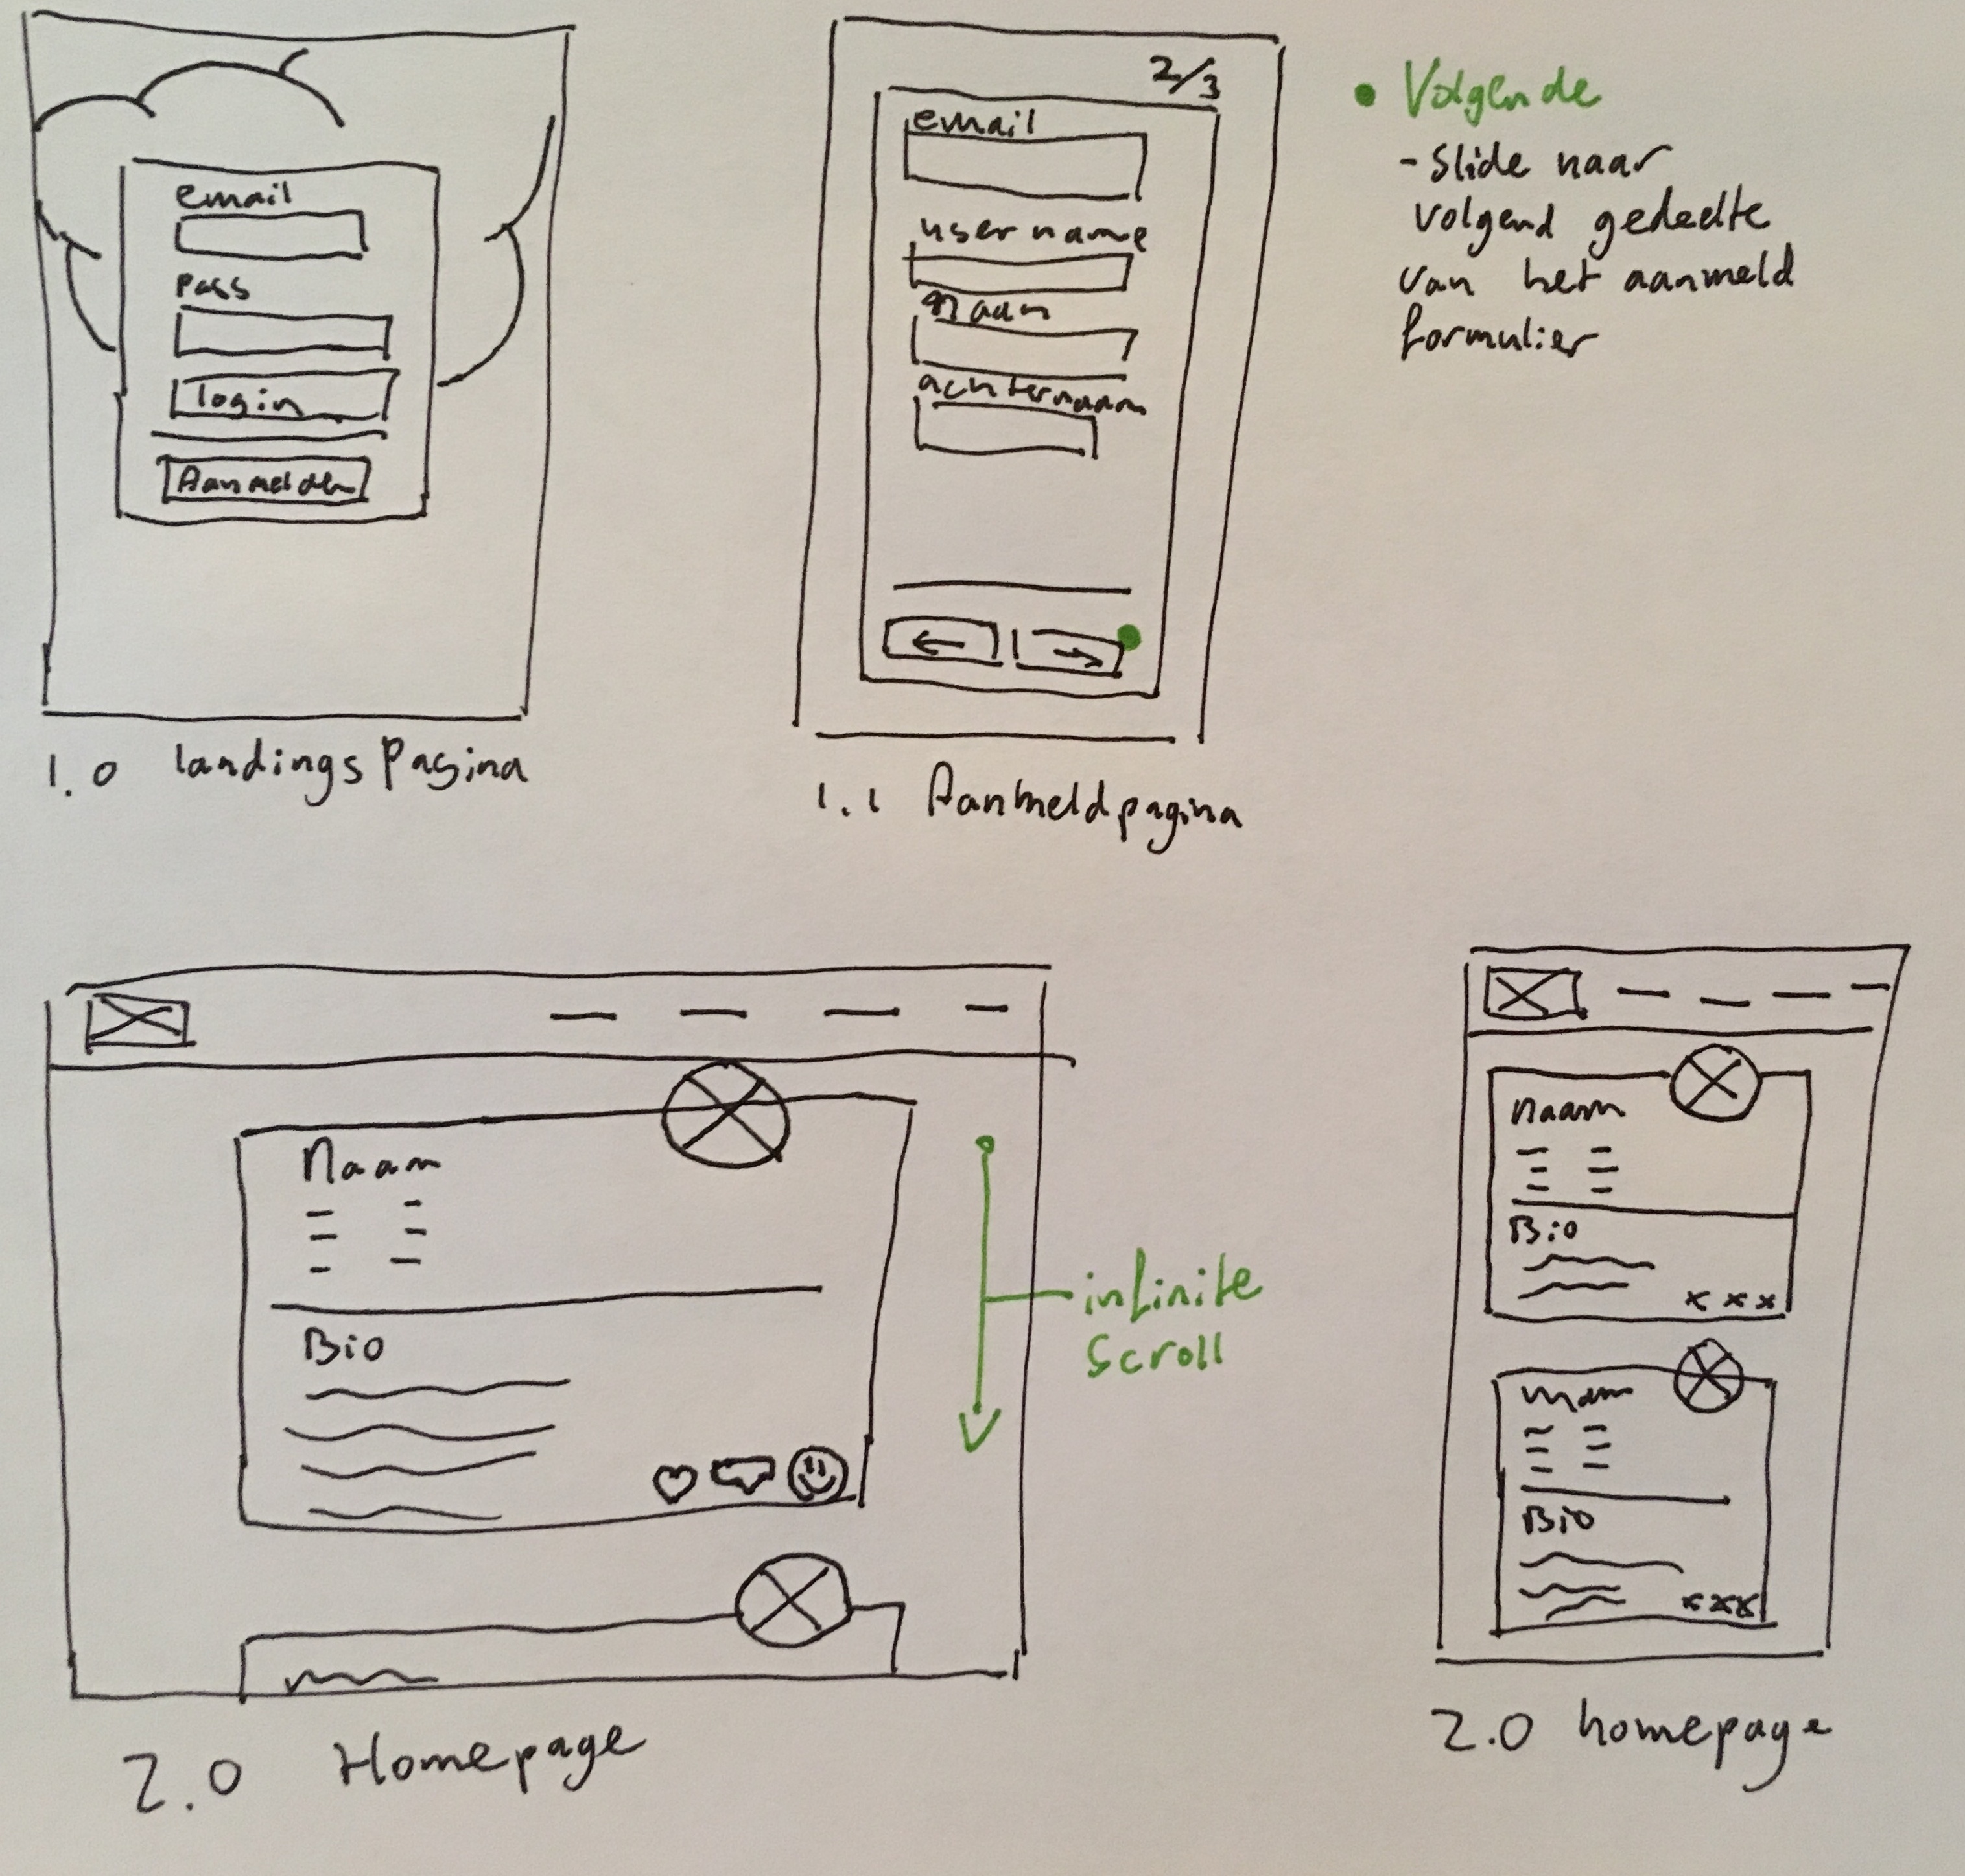 email
pass
login
Aanmelden
1.0 landingspagina
2/3
email
username
naam
achternaam
1.1 Aanmeldpagina
• Volgende
- slide naar
volgend gedeelte
van het aanmeld
formulier
Naam
Bio
infinite
scroll
2.0 Homepage
naam
Bio
x x x
naam
Bio
x x x
2.0 homepage